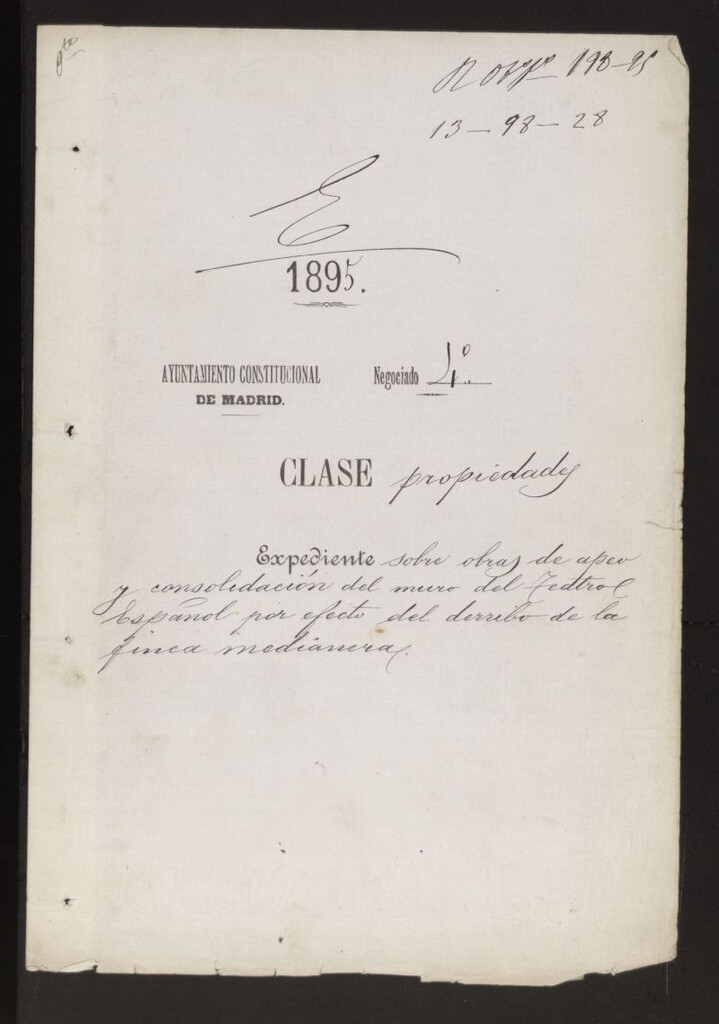 198-95
13-98-28
E
1895.
AYUNTAMIENTO CONSTITUCIONAL
DE MADRID.
Negociado 4º
CLASE propiedades
Expediente sobre obras de apeo
y consolidación del muro del Teatro
Español por efecto del derribo de la
finca medianera.